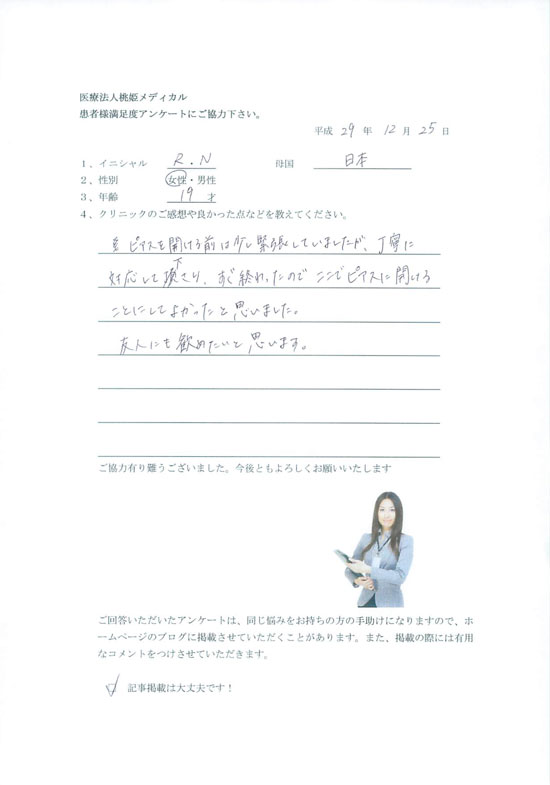 医療法人桃姫メディカル
患者様満足度アンケートにご協力下さい。
平成 29 年 12 月 25 日
1、イニシャル R.N 母国 日本
2、性別 女性・男性
3、年齢 19 才
4、クリニックのご感想や良かった点などを教えてください。
ピアスを開ける前は少し緊張していましたが、丁寧に
対応して下さり、すぐ終わったので ここでピアスに開ける
ことにしてよかったと思いました。
友人にも勧めたいと思います。
ご協力有り難うございました。今後ともよろしくお願いいたします
ご回答いただいたアンケートは、同じ悩みをお持ちの方の手助けになりますので、ホ
ームページのブログに掲載させていただくことがあります。また、掲載の際には有用
なコメントをつけさせていただきます。
記事掲載は大丈夫です！